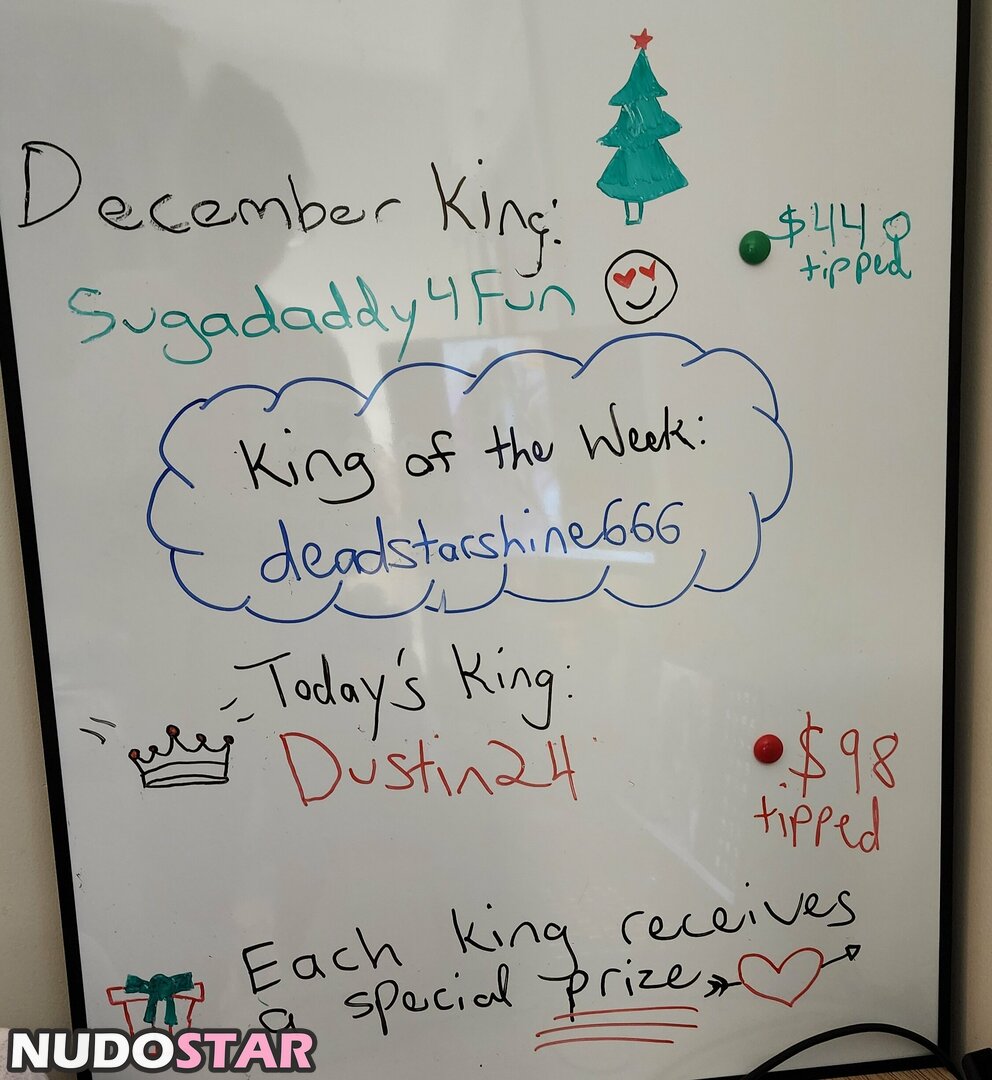 December King:
$449
tipped
Sugadaddy4Fun
King of the Week:
deadstarshine666
Today's King:
Dustin24
$98
tipped
Each king receives
a special prize
NUDOSTAR